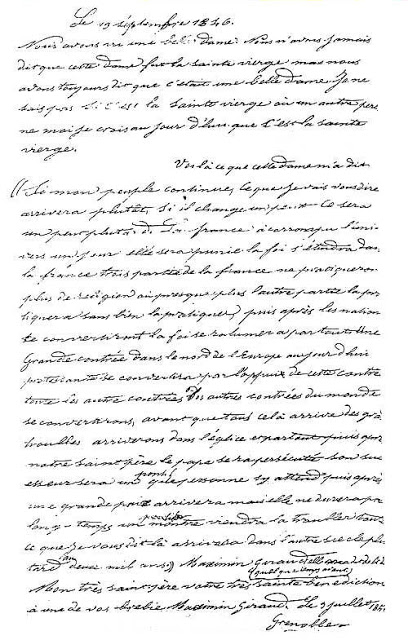 Le 19 septembre 1846.
Nous avons vu une belle dame Nous n'avons jamais
dit que cette dame fut la sainte vierge mais nous
avons toujours dit que c'était une belle dame Je ne
sais pas si c'est la sainte vierge ou un autre per
ne moi je crois au jour d'hui que c'est la sainte
vierge.
Voila ce que cette dame m'a dit
Si mon peuple continue, ce que je vais vous dire
arrivera plutôt, si il change un peut ce sera
un peut plus tard. La france a corrompu l'uni
vers un jour elle sera punie la foi s'eteindra dans
la france trois partie de la france ne pratiqueron
plus de religion ou presque plus l'autre partie la pra
tiquera sans bien la pratiquer, puis après les nation
se convertiront la foi se ralumera partout Une
Grande contrée dans le nord de l'Europe aujourd'hui
protestante se convertira par l'appuie de cette contré
toute les autre contrées Des autres contrées du monde
se converterons, avant que tous celà arrive des gra
troubles arriverons dans l'église et partout puis après
notre saint père le pape sera persecuté son suc
esseur sera un pontif que personne s'y attend puis après
une grande paix arrivera mais elle ne durera pas
long-temps un monstre viendra la troubler tous
ce que je vous dit là arrivera dans l'autre siecle plu
tard au deux mil ans, Maximin Giraud elle m'a dit de le di
quelque temps avant
Mon très saint père votre très sainte bénédiction
à une de vos brebie Maximin Giraud, Le 3 juillet 1851
Grenoble